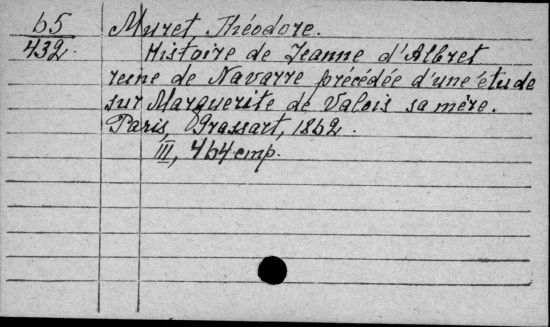 65
432.
Muret, Théodore.
Histoire de Jeanne d'Albret
reine de Navarre précédée d'une étude
sur Marguerite de Valois sa mère.
Paris, Grassart, 1862.
III, 464 emp.